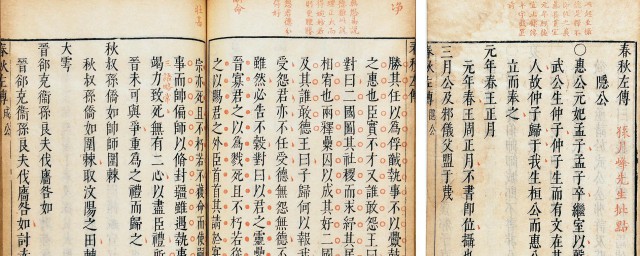 春秋左傳
隱公
孫月峰先生批點
○惠公元妃孟子孟子卒繼室以聲
武公生仲子仲子生而有文在其
人故仲子歸于我生桓公而惠公
立而奉之
元年春王正月
元年春王周正月不書即位攝也
三月公及邾儀父盟于蔑
春秋左傳 隱公
春秋左傳
勝其任以為俘馘執事不以釁鼓
之惠也臣實不才又誰敢怨王曰
對曰二國圖其社稷而求紓其民
相宥也兩釋纍囚以成其好二國
及其誰敢德王曰子歸何以報我
受怨君亦不任受德無怨無德不
雖然必告不穀對曰以君之靈纍
晉寡君之以為戮死且不朽若從
以賜君之外臣首首其請於寡
宗亦死且不朽若不獲命而使嗣
事而帥偏師以脩封疆雖遇執事
竭力致死無有二心以盡臣禮所
晉未可與爭重為之禮而歸之
秋叔孫僑如帥師圍棘
秋叔孫僑如圍棘取汶陽之田棘
大雩
晉郤克衛孫良夫伐廧咎如
晉郤克衛孫良夫伐廧咎如討赤
春秋左傳 成公